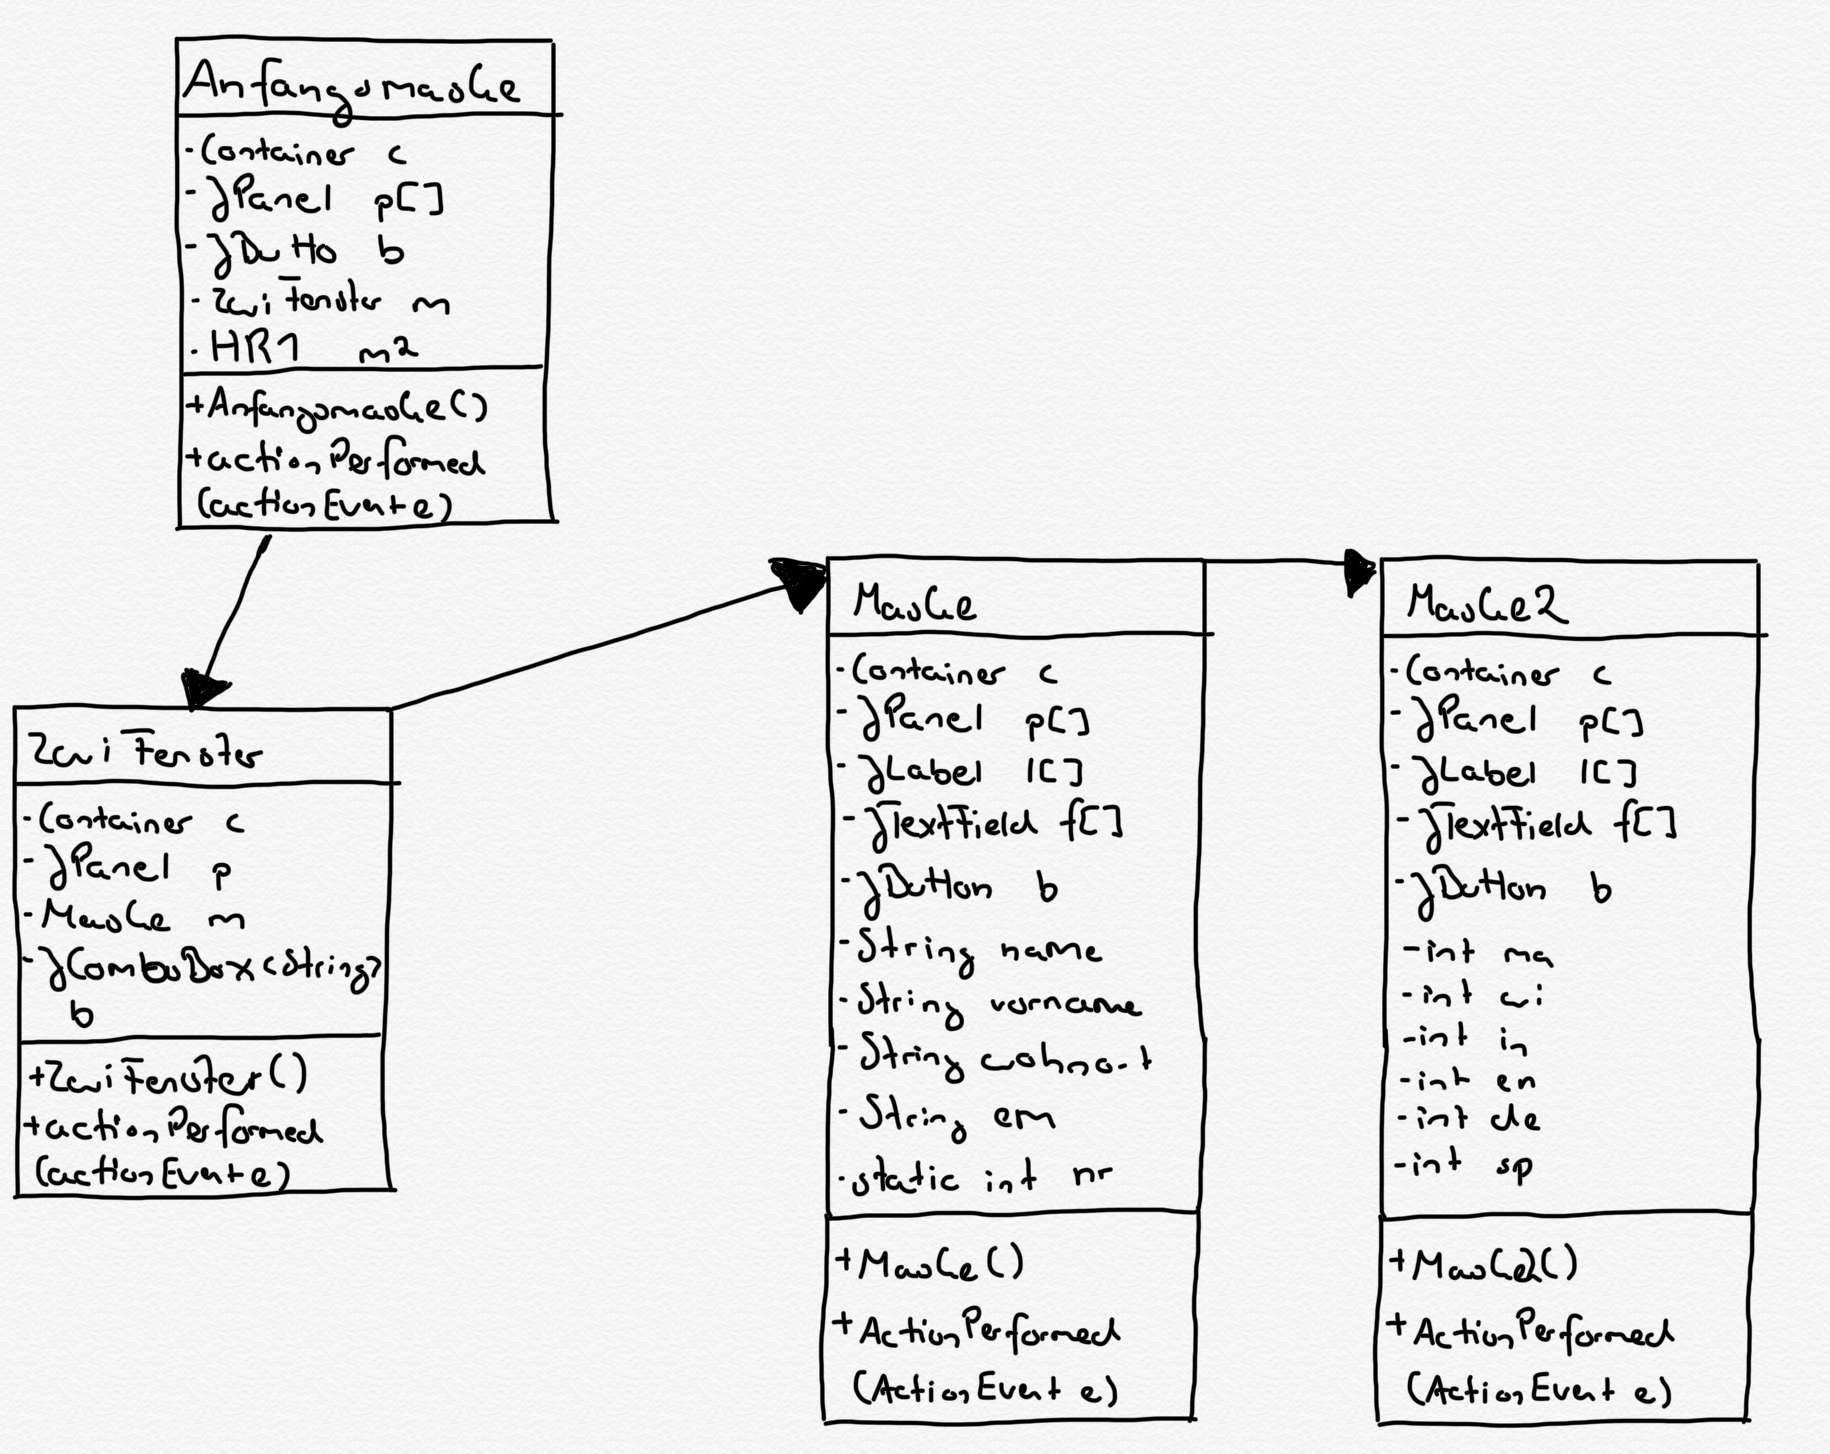 Anfangsmaske
-Container c
-JPanel p[]
-JButto b
-ZwiFenster m
-HR1 m2
+Anfangsmaske()
+actionPerformed
(actionEvent e)
ZwiFenster
-Container c
-JPanel p
-Maske m
-JComboBox<String>
b
+ZwiFenster()
+actionPerformed
(actionEvent e)
Maske
-Container c
-JPanel p[]
-JLabel l[]
-JTextField f[]
-JButton b
-String name
-String vorname
-String wohno-t
-String em
-static int nr
+Maske()
+ActionPerformed
(ActionEvent e)
Maske2
-Container c
-JPanel p[]
-JLabel l[]
-JTextField f[]
-JButton b
-int ma
-int wi
-int in
-int en
-int de
-int sp
+Maske2()
+ActionPerformed
(ActionEvent e)